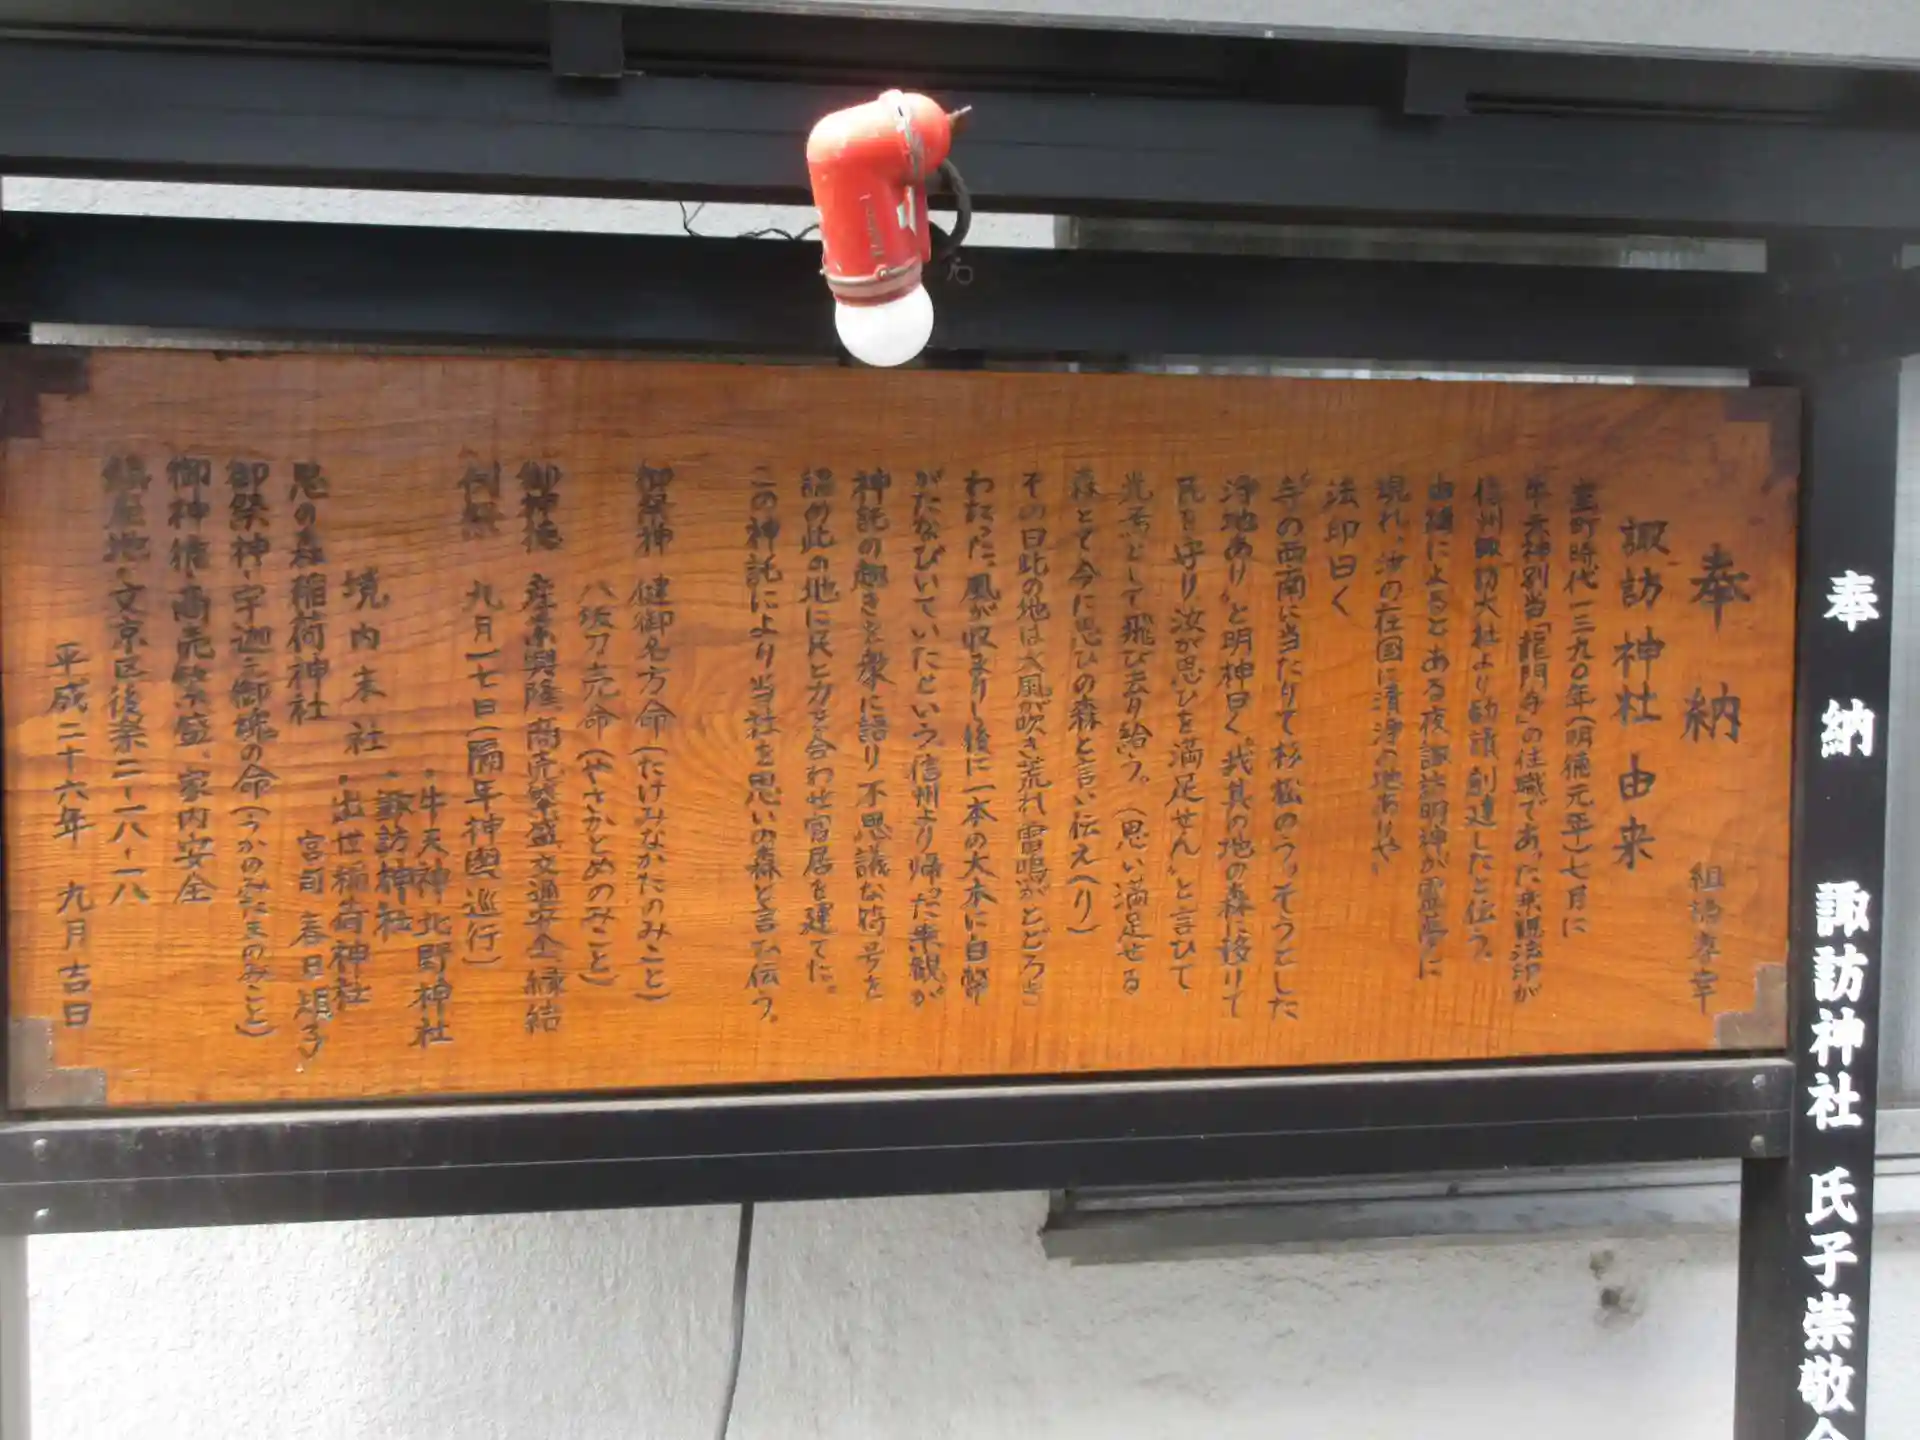 奉納
諏訪神社 氏子崇敬会
奉納
諏訪神社由来
室町時代一三九〇年(明徳元年)七月に
牛天神別当「龍門寺」の住職であった乗観法印が
信州諏訪大社より勧請創建したと伝う。
由緒によるとある夜諏訪明神が霊夢に
現れ、汝の在国に清浄の地ありや"
法印曰く
"寺の西南に当たりて杉松のうっそうとした
浄地あり"と明神曰く"我其の地の森に移りて
氏を守り汝が思ひを満足せん"と言ひて
光焉として飛び去り給う。(思い満足せる
森とて今に思ひの森と言い伝えへり)
その日此の地は大風が吹き荒れ雷鳴がとどろき
わたった。風が収まりし後に一本の大木に白幣
がたなびいていたという。信州より帰った乗観が
神託の趣きを衆に語り 不思議な符号を
認め此の地に氏と力を合わせ宮居を建てた。
この神託により当社を思いの森と言ひ伝う。
御祭神 健御名方命(たけみなかたのみこと)
八坂刀売命(やさかとめのみこと)
御神徳 産業興隆 商売繁盛 交通安全 縁結
例祭 九月一七日(隔年神輿巡行)
・牛天神北野神社
・諏訪神社
境内末社 ・出世稲荷神社
宮司 春日
思の森稲荷神社
御祭神・宇迦之御魂の命(うかのみたまのみこと)
御神徳・商売繁盛、家内安全
鎮座地・文京区後楽二-一八-一八
平成二十六年 九月吉日